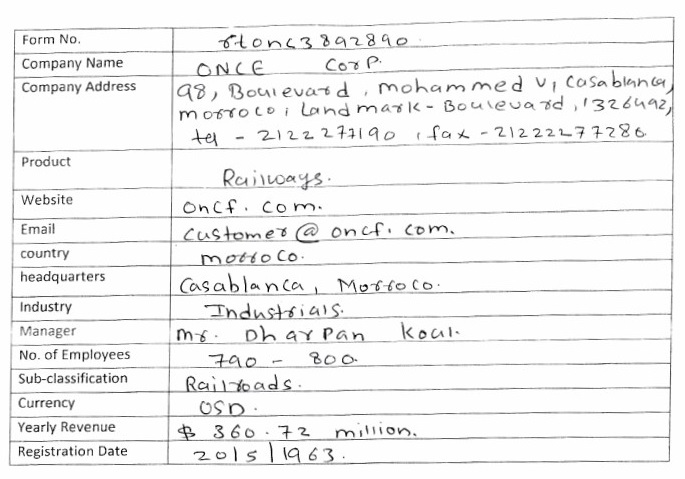 Form No. rtonc3892890.
Company Name ONCE Corp.
Company Address 98, Boulevard, mohammed V, Casablanca,
morroco, Landmark-Boulevard, 1326492,
tel - 2122277190, fax - 21222277286
Product Railways.
Website oncf.com.
Email customer@oncf.com.
country morroco.
headquarters Casablanca, Morroco.
Industry Industrials.
Manager mr. Dharpan koul.
No. of Employees 790 - 800.
Sub-classification Railroads.
Currency USD.
Yearly Revenue $ 360.72 million.
Registration Date 20|5|1963.